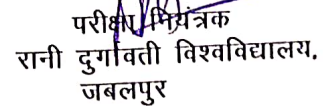 परीक्षा नियंत्रक
रानी दुर्गावती विश्वविद्यालय.
जबलपुर